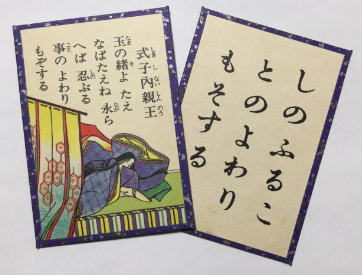 式子内親王
玉の緒よ たえ
なばたえね 永ら
へば 忍ぶる
事の よわり
もぞする
しのふるこ
とのよわり
もそする